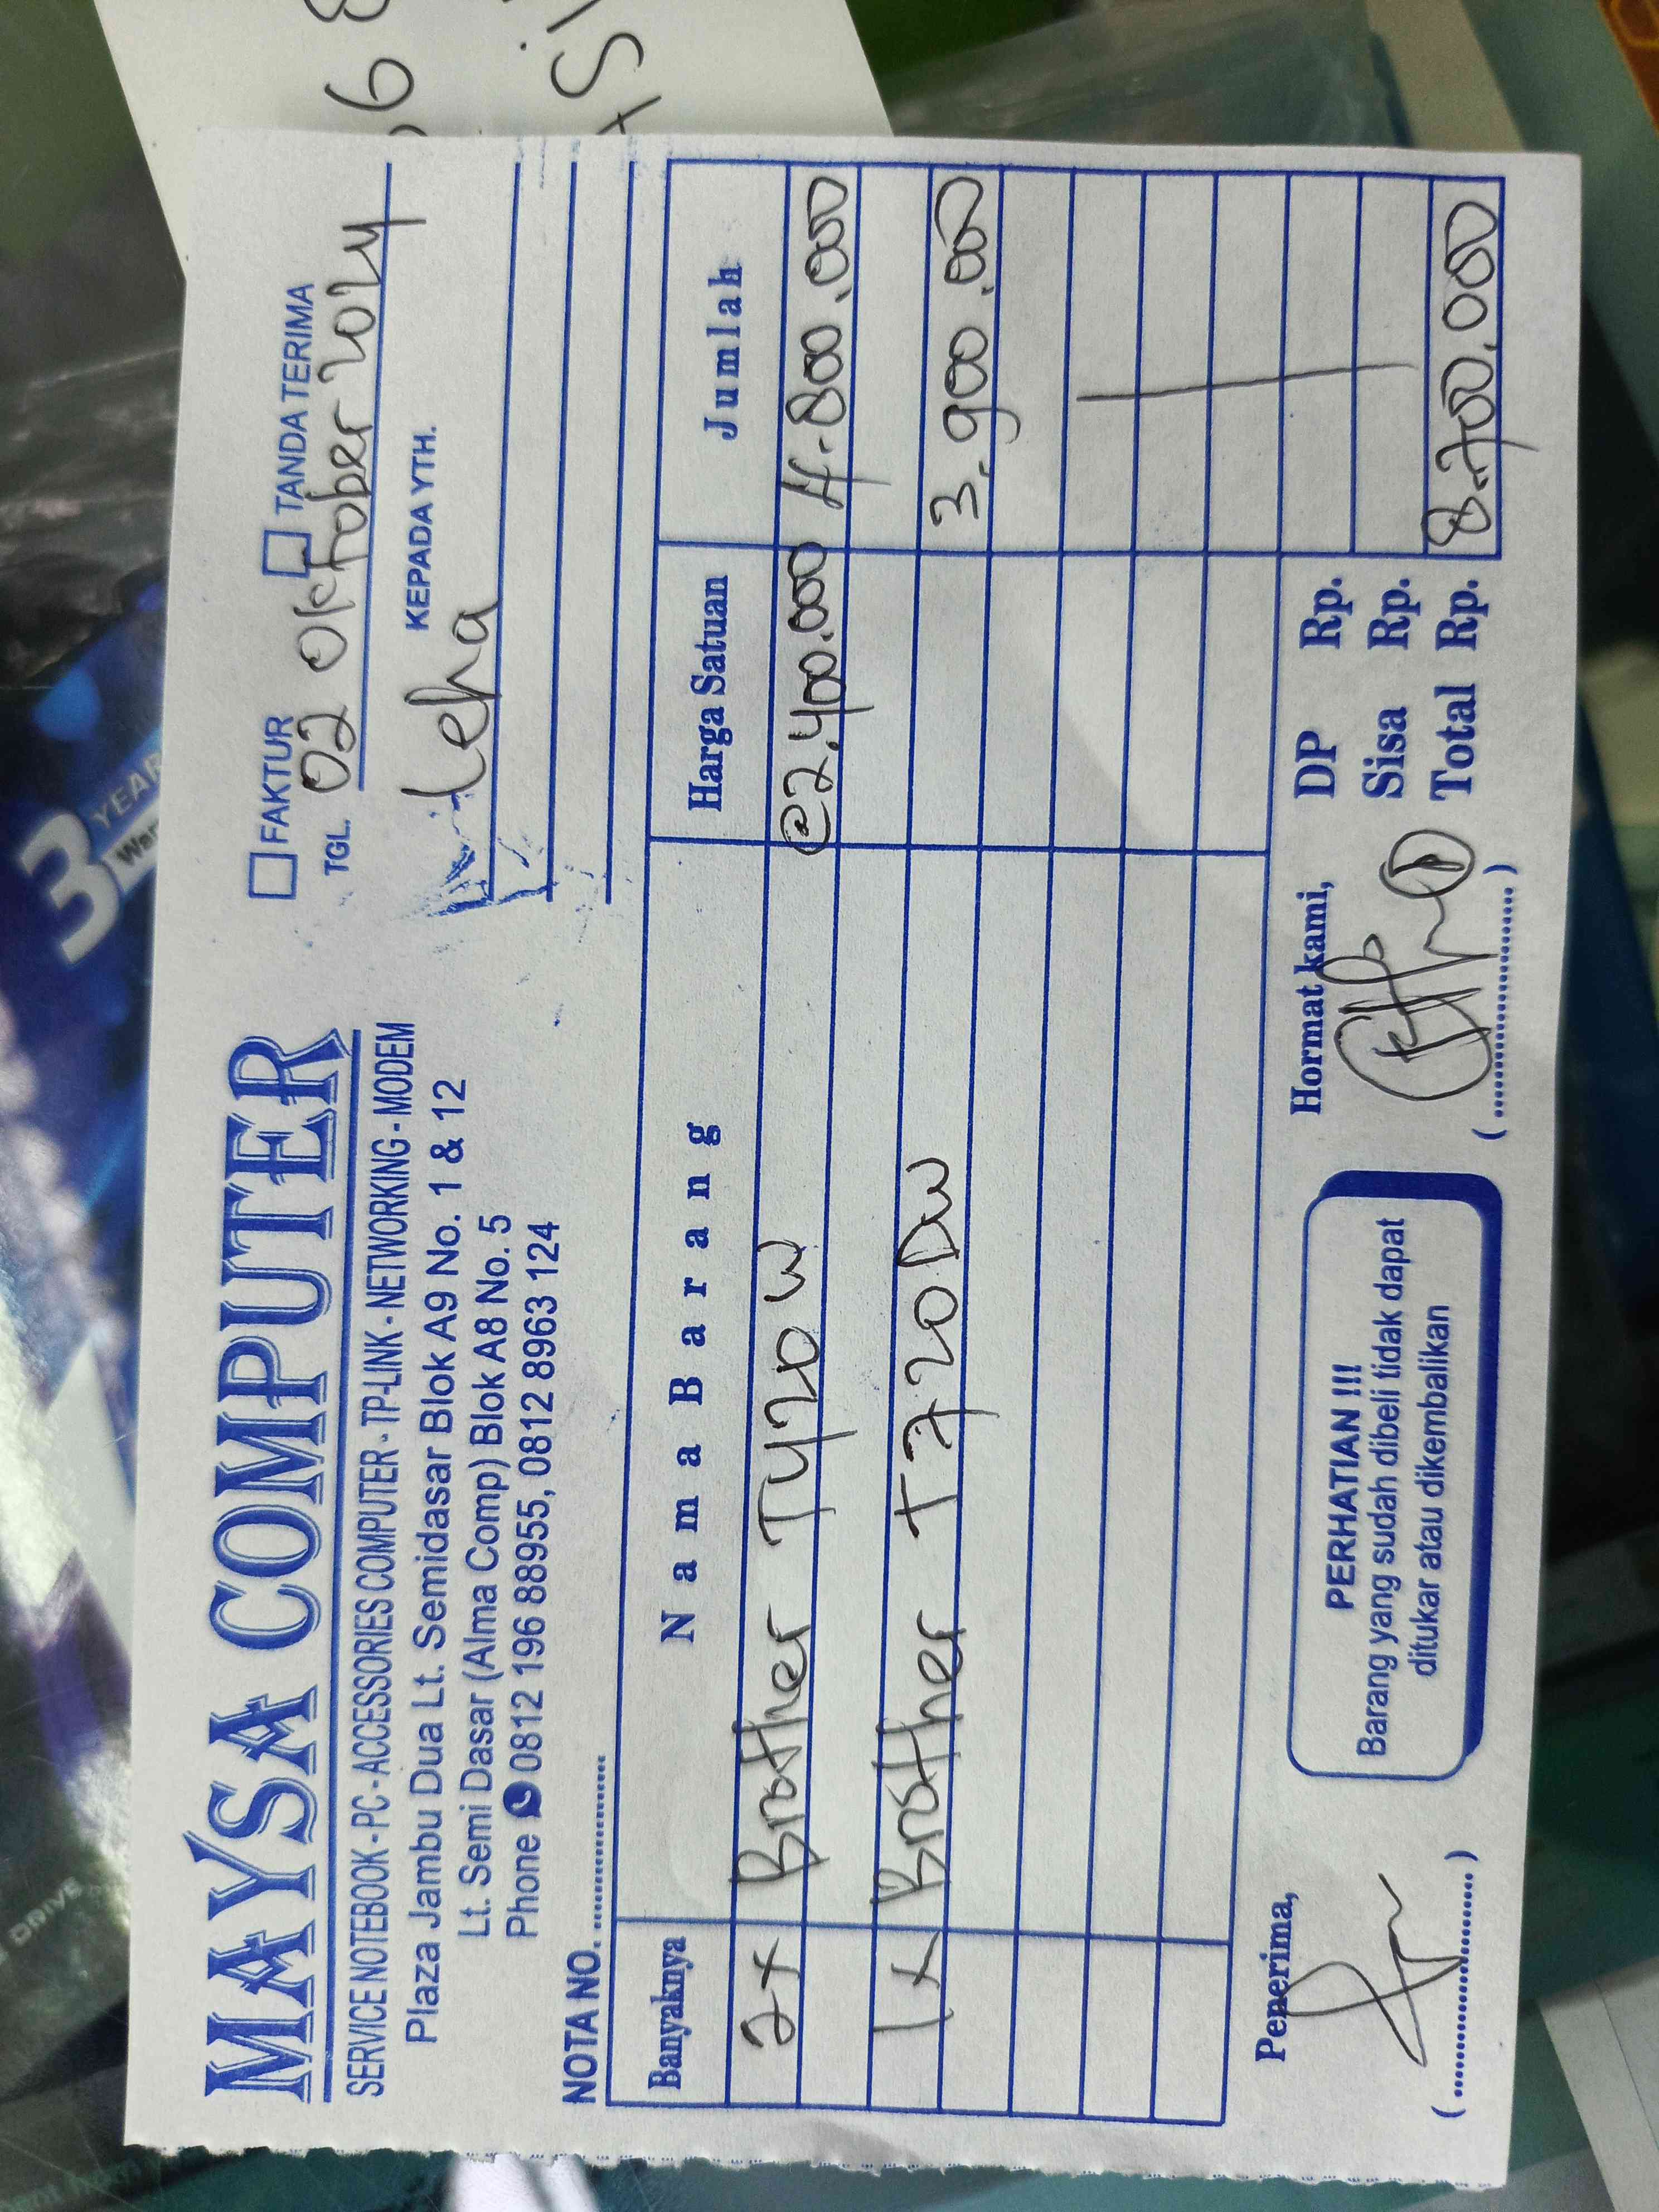 MAYSA COMPUTER
SERVICE NOTEBOOK - PC - ACCESSORIES COMPUTER - TP-LINK - NETWORKING - MODEM
Plaza Jambu Dua Lt. Semidasar Blok A9 No. 1 & 12
Lt. Semi Dasar (Alma Comp) Blok A8 No. 5
Phone 0812 196 88955, 0812 8963 124
NOTA NO. ....................
FAKTUR TANDA TERIMA
TGL. 02 Oktober 2024
KEPADA YTH.
Leha
Banyaknya Nama Barang Harga Satuan Jumlah
2x Brother T420W @2.400.000 4.800.000
1x Brother T720DW 3.900.000
Penerima,
(........................)
PERHATIAN !!!
Barang yang sudah dibeli tidak dapat
ditukar atau dikembalikan
Hormat kami,
(........................)
DP Rp.
Sisa Rp.
Total Rp. 8.700.000
3
YEAR
DRIVE